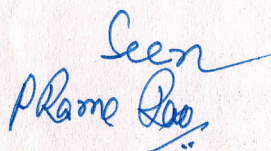 Seen
P Rame Rao